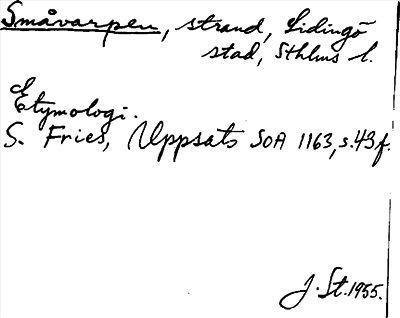 Småvarpen, strand, Lidingö
stad, Sthlms l.
Etymologi.
S. Fries, Uppsats SOA 1163, s. 43 f.
J. St. 1955.